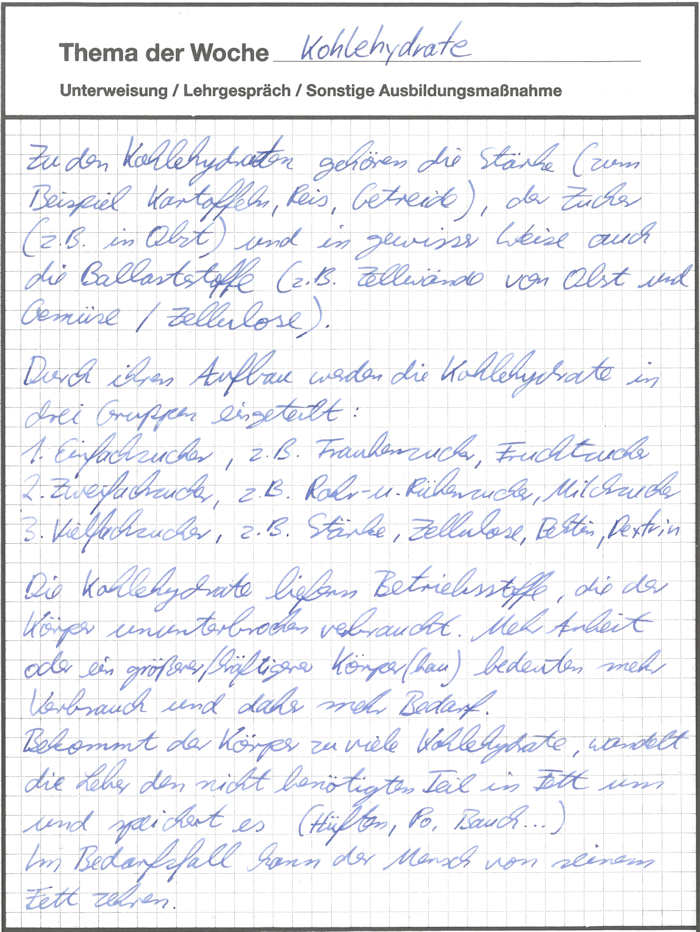 Thema der Woche Kohlehydrate
Unterweisung / Lehrgespräch / Sonstige Ausbildungsmaßnahme
Zu den Kohlehydraten gehören die Stärke (zum
Beispiel Kartoffeln, Reis, Getreide), der Zucker
(z.B. in Obst) und in gewisser Weise auch
die Ballaststoffe (z.B. Zellwände von Obst und
Gemüse / Zellulose).
Durch ihren Aufbau werden die Kohlehydrate in
drei Gruppen eingeteilt:
1. Einfachzucker, z.B. Traubenzucker, Fruchtzucker
2. Zweifachzucker, z.B. Rohr-u.Rübenzucker, Milchzucker
3. Vielfachzucker, z.B. Stärke, Zellulose, Pektin, Dextrin
Die Kohlehydrate liefern Betriebsstoffe, die der
Körper ununterbrochen verbraucht. Mehr Arbeit
oder ein größerer/kräftigerer Körper(bau) bedeuten mehr
Verbrauch und daher mehr Bedarf.
Bekommt der Körper zu viele Kohlehydrate, wandelt
die Leber den nicht benötigten Teil in Fett um
und speichert es (Hüften, Po, Bauch...)
Im Bedarfsfall kann der Mensch von seinem
Fett zehren.